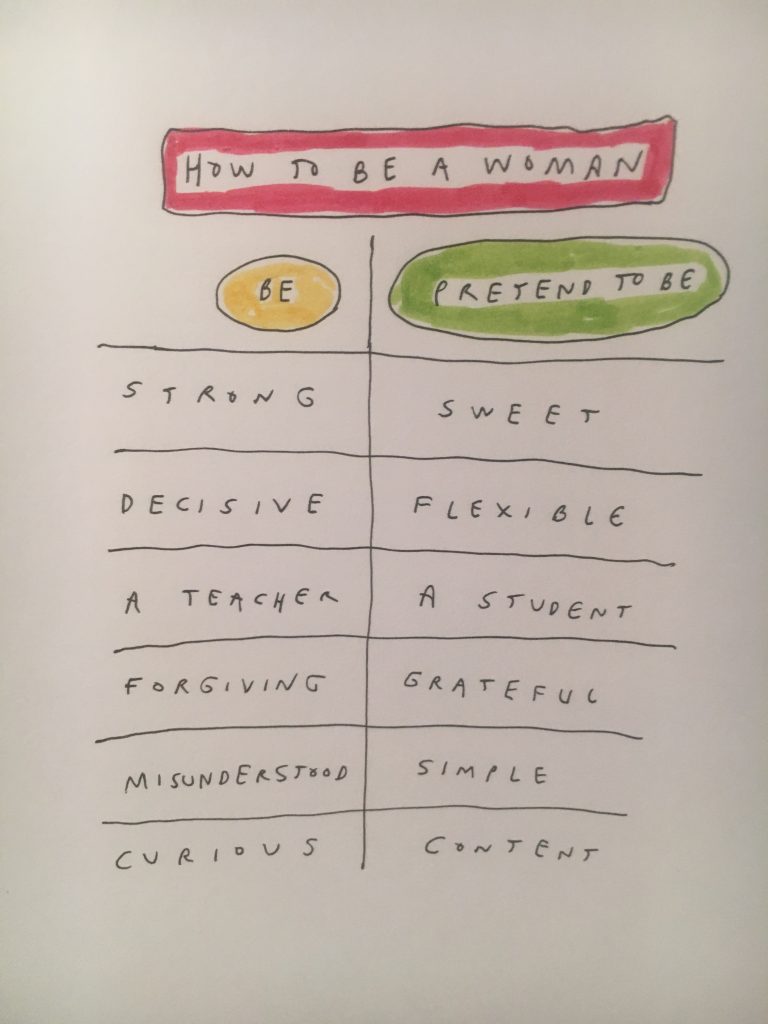 HOW TO BE A WOMAN
BE PRETEND TO BE
STRONG SWEET
DECISIVE FLEXIBLE
A TEACHER A STUDENT
FORGIVING GRATEFUL
MISUNDERSTOOD SIMPLE
CURIOUS CONTENT